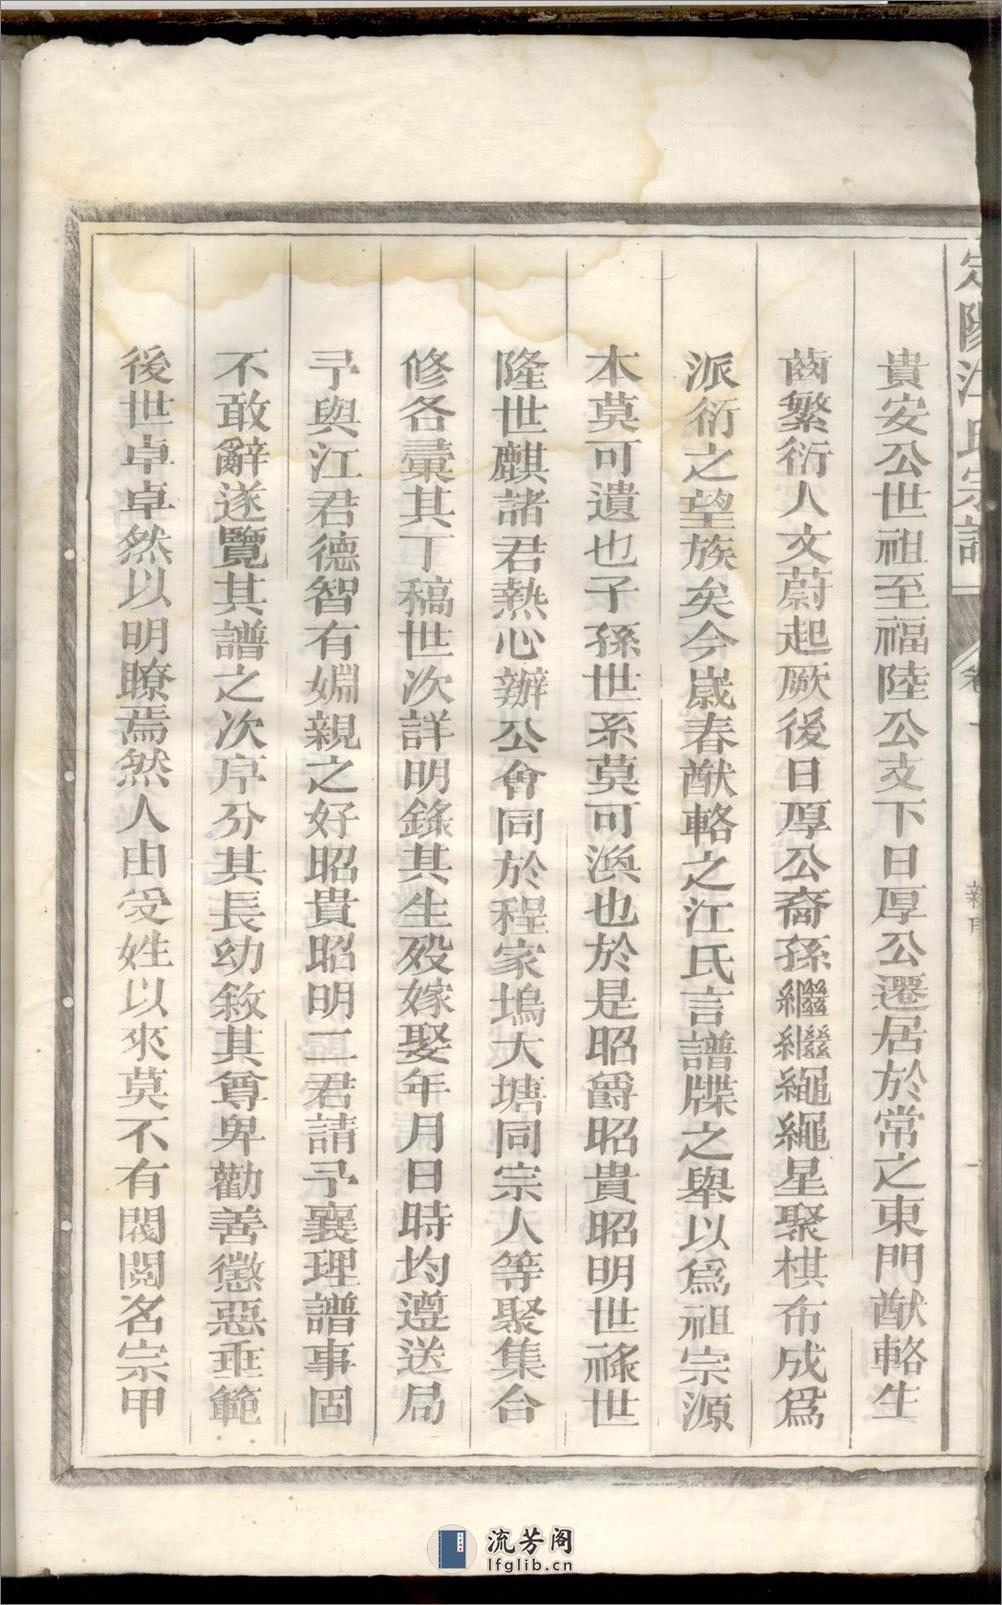 定陽江氏宗譜
卷一
新序
一
貴安公世祖至福陸公支下日厚公遷居於常之東門猷輅生
齒繁衍人文蔚起厥後日厚公裔孫繼繼繩繩星聚棋布成為
派衍之望族矣今歲春猷輅之江氏言譜牒之舉以為祖宗源
本莫可遺也子孫世系莫可渙也於是昭爵昭貴昭明世祿世
隆世麒諸君熱心辦公會同於程家塢大塘同宗人等聚集台
修各彙其丁稿世次詳明錄其生歿嫁娶年月日時均遵送局
予與江君德智有婣親之好昭貴昭明二君請予襄理譜事固
不敢辭遂覽其譜之次序分其長幼敘其尊卑勸善懲惡垂範
後世卓卓然以明瞭焉然人由受姓以來莫不有閥閱名宗甲
流芳阁
lfglib.cn